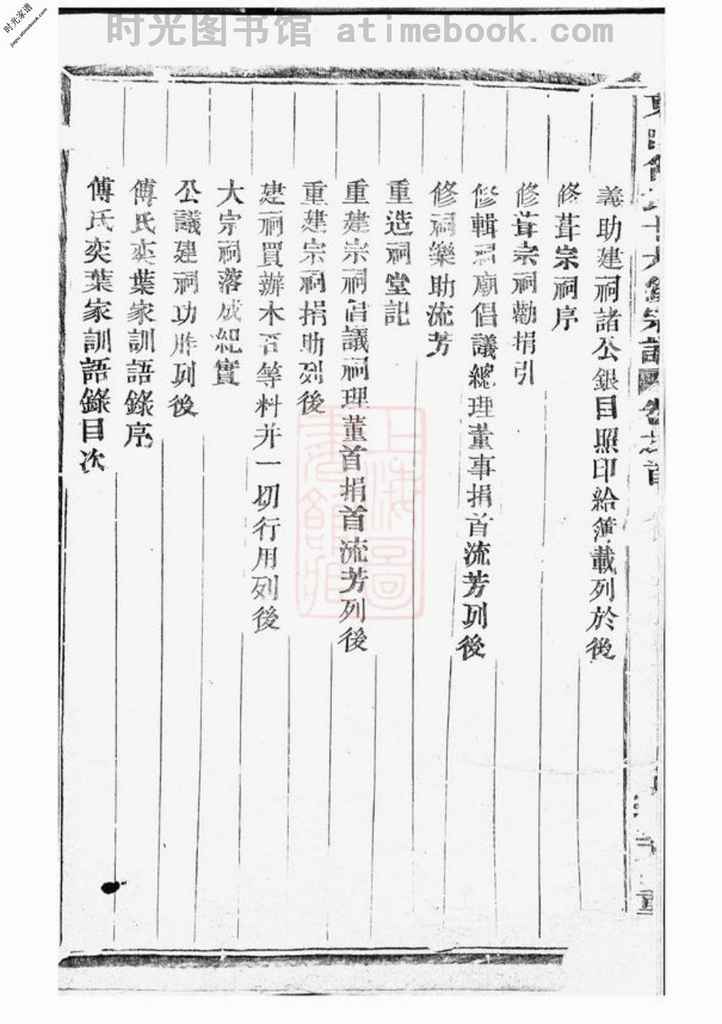 时光图书馆 atimebook.com
时光家谱
jiapu.atimebook.com
義助建祠諸公銀目照印給簿載列於後
修葺宗祠序
修葺宗祠勸捐引
修輯祠廟倡議總理董事捐首流芳列後
修祠樂助流芳
重造祠堂記
重建宗祠倡議祠理董首捐首流芳列後
重建宗祠捐助列後
建祠買辦木石等料并一切行用列後
大宗祠落成紀實
公議建祠功胙列後
傅氏奕葉家訓語錄序
傅氏奕葉家訓語錄目次
上海圖書館藏